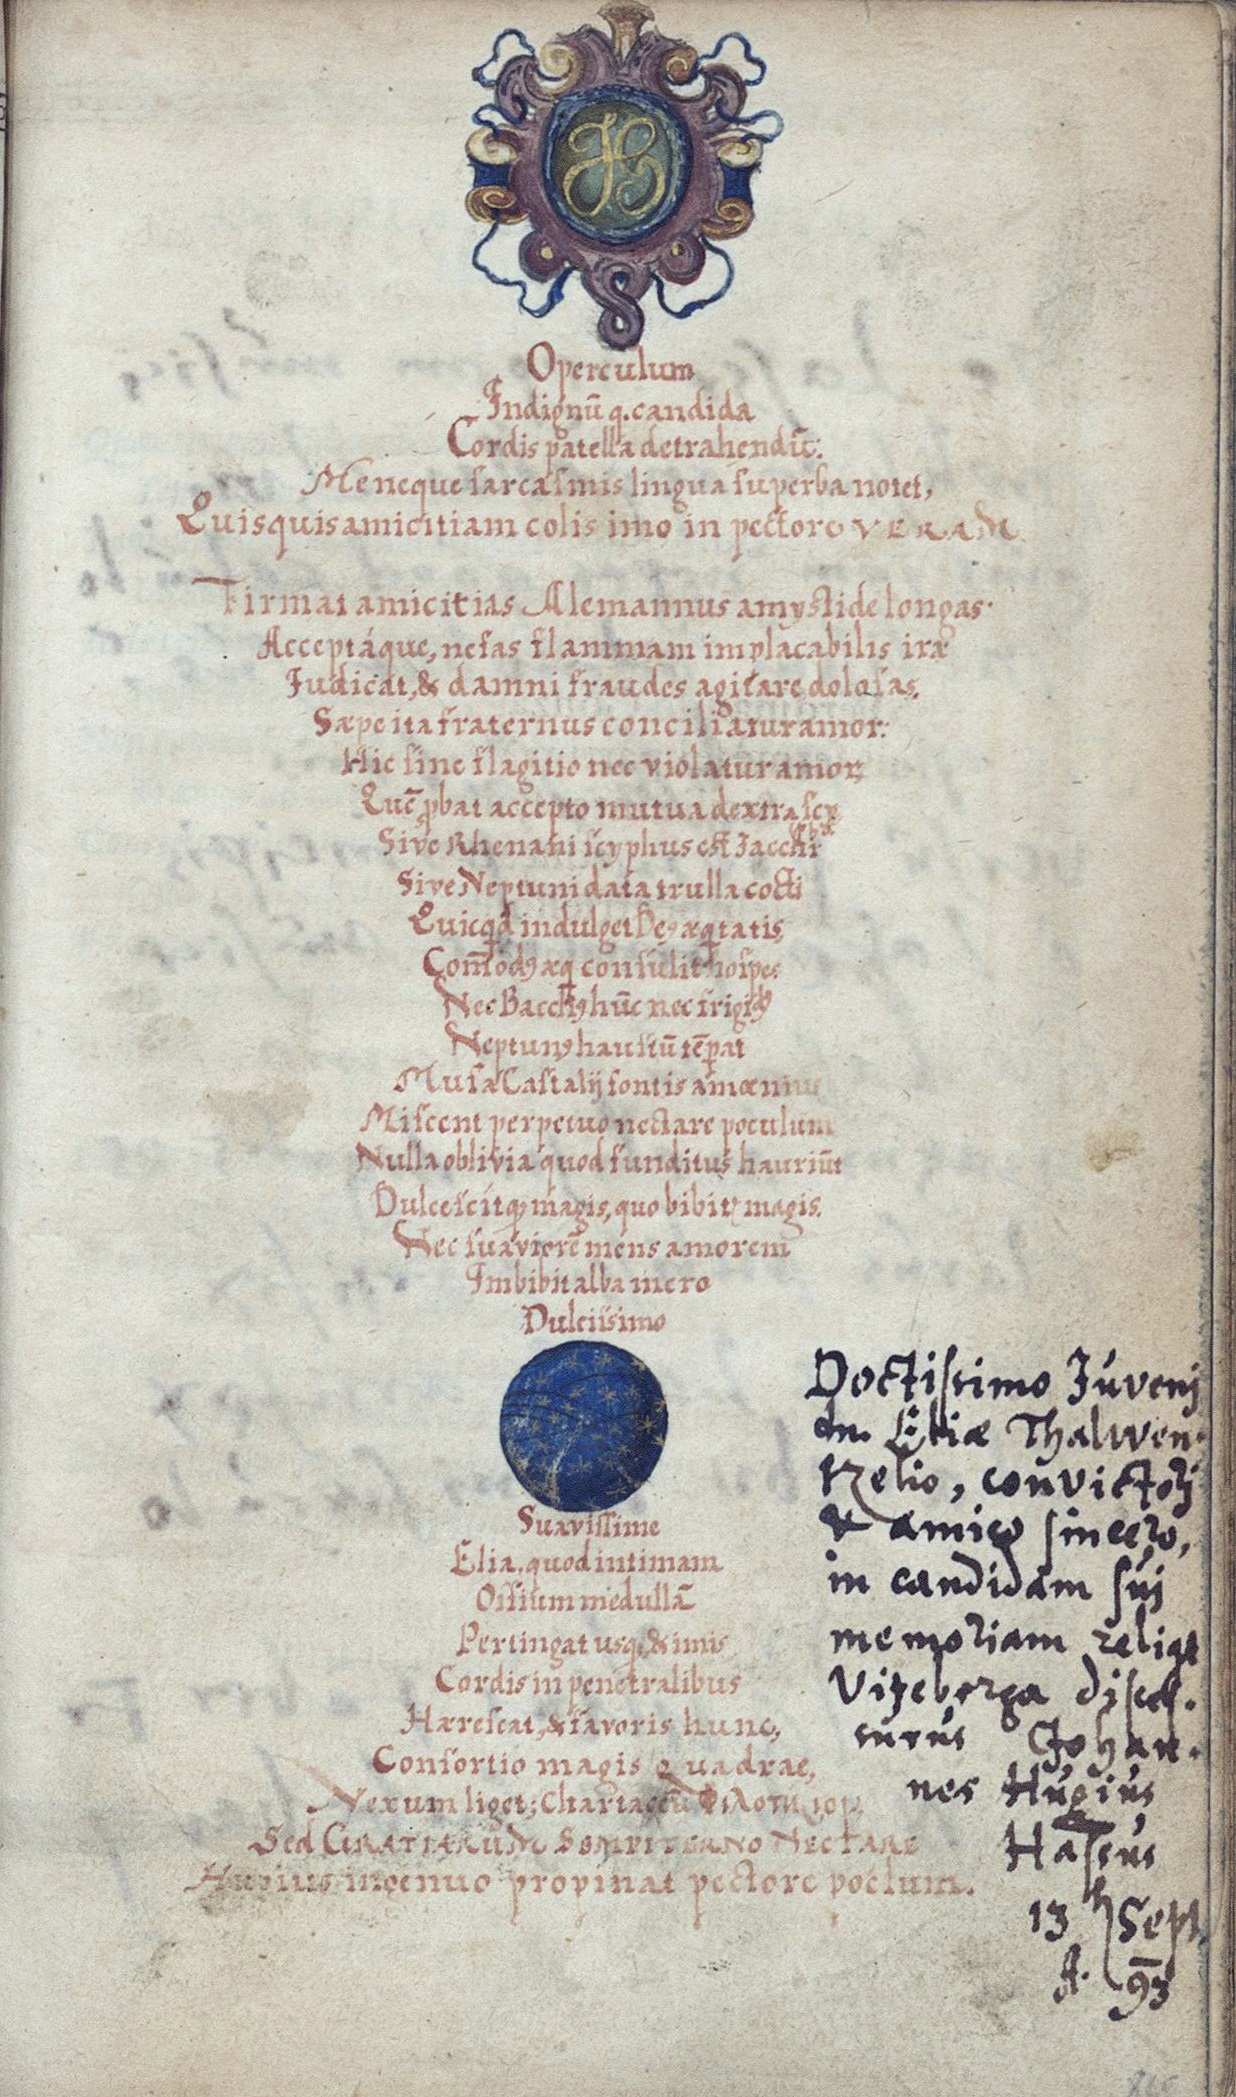 Operculum
Indignū q. candida
Cordis patella detrahendū:
Me neque sarcasmis lingua superba notet,
Quisquis amicitiam colis imo in pectore VERAM
Firmat amicitias Alemannus amystide longas
Acceptáque, nefas flammam implacabilis iræ
Judicat, & damni fraudes agitare dolosas.
Sæpe ita fraternus conciliatur amor:
Hic sine flagitio nec violatur amor,
accepto mutua dextra
Sive Rhenani scyphus est Iacchi
Sive Neptuni data trulla cocti
indulget
consulit hospes
Nec hūc nec
haustū
Musæ Castalij fontis amœnius
Miscent perpetuo nectare poculum
Nulla oblivia quod funditus hauriūt
magis, quo magis.
Nec suaviorē mens amorem
Imbibit alba mero
Dulcissimo
Suavissime
Elia, quod intimam
Ossium medullā
Pertingat usq, & imis
Cordis in penetralibus
Hærescat, & favoris hunc,
Consortio magis quadrae,
Nexum liget;
Sed GRATIARUM SEMPITERNO NECTARE
Hugius ingenuo propinat pectore poclum.
Doctissimo Juveni
dn. Eliæ Thalwen-
tzelio, convictori
& amico sincero,
in candidam sui
memoriam reliqt
Vitebergâ disces-
surus Johan-
nes Hugius
Hassus
13 Sept.
A. 93